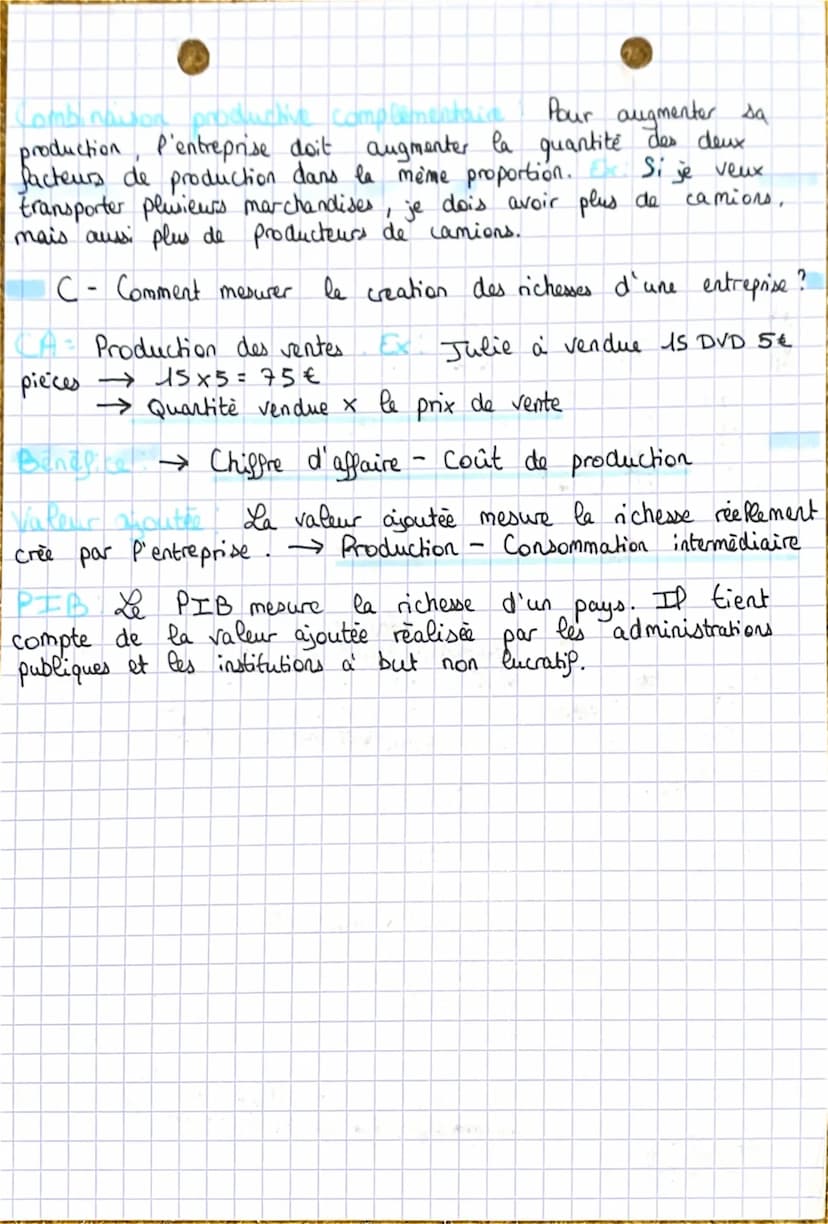 Combinaison productive complémentaire : Pour augmenter sa
production, l'entreprise doit augmenter la quantité des deux
facteurs de production dans la même proportion. Ex : Si je veux
transporter plusieurs marchandises, je dois avoir plus de camions,
mais aussi plus de producteurs de camions.
C - Comment mesurer la creation des richesses d'une entreprise ?
CA = Production des ventes. Ex : Julie à vendue 15 DVD 5€
pièces → 15 x 5 = 75 €
→ Quantité vendue x le prix de vente
Bénéfice : → Chiffre d'affaire - Coût de production
Valeur ajoutée : La valeur ajoutée mesure la richesse réellement
crée par l'entreprise. → Production - Consommation intermédiaire
PIB : Le PIB mesure la richesse d'un pays. Il tient
compte de la valeur ajoutée réalisée par les administrations
publiques et les institutions à but non lucratif.